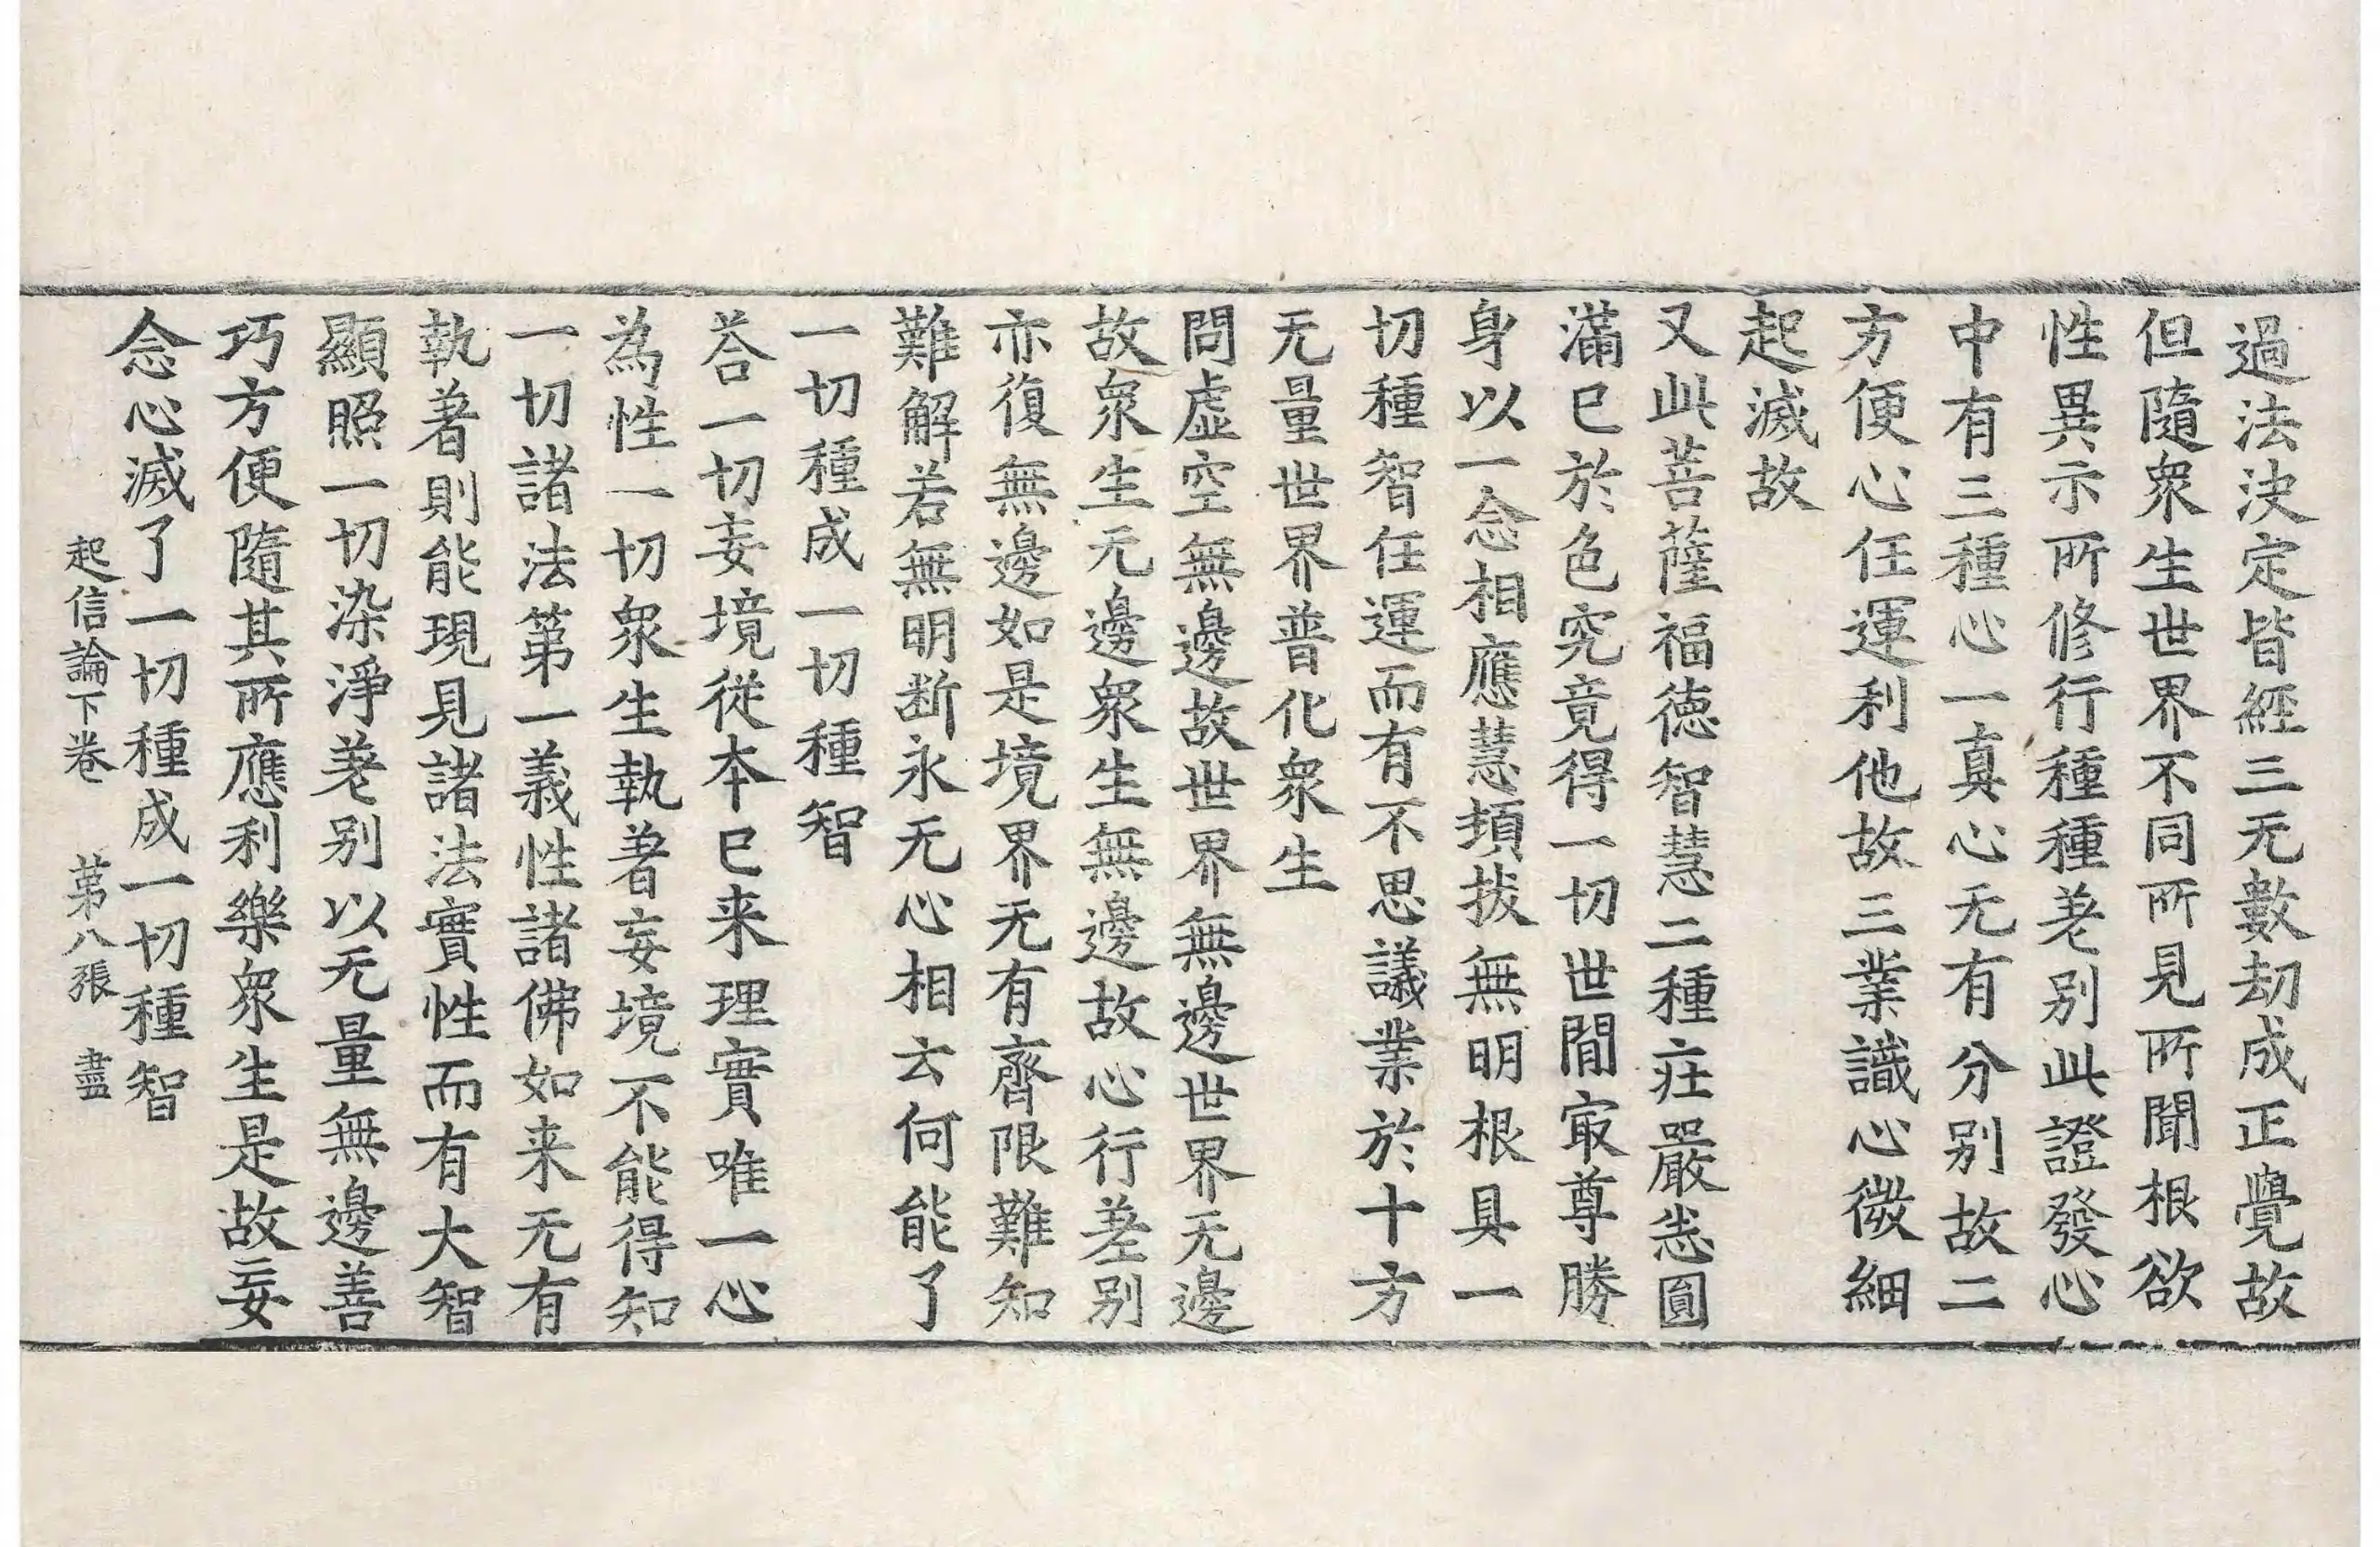 過法決定皆經三无數劫成正覺故
但隨眾生世界不同所見所聞根欲
性異示所修行種種差别此證發心
中有三種心一真心无有分别故二
方便心任運利他故三業識心微細
起滅故
又此菩薩福德智慧二種莊嚴悉圓
滿已於色究竟得一切世間㝡尊勝
身以一念相應慧頓拔無明根具一
切種智任運而有不思議業於十方
无量世界普化眾生
問虛空無邊故世界無邊世界无邊
故眾生无邊眾生無邊故心行差别
亦復無邊如是境界无有齊限難知
難解若無明断永无心相云何能了
一切種成一切種智
荅一切妄境從本已来理實唯一心
為性一切眾生執著妄境不能得知
一切諸法第一義性諸佛如来无有
執著則能現見諸法實性而有大智
顯照一切染淨差别以无量無邊善
巧方便隨其所應利樂眾生是故妄
念心滅了一切種成一切種智
起信論下卷　第八張　盡